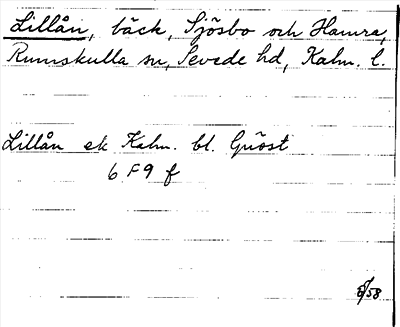 Lillån, bäck, Sjösbo och Hamra,
Rumskulla sn, Sevede hd, Kalm. l.
Lillån ek Kalm. bl. Gnöst
6 F 9 f